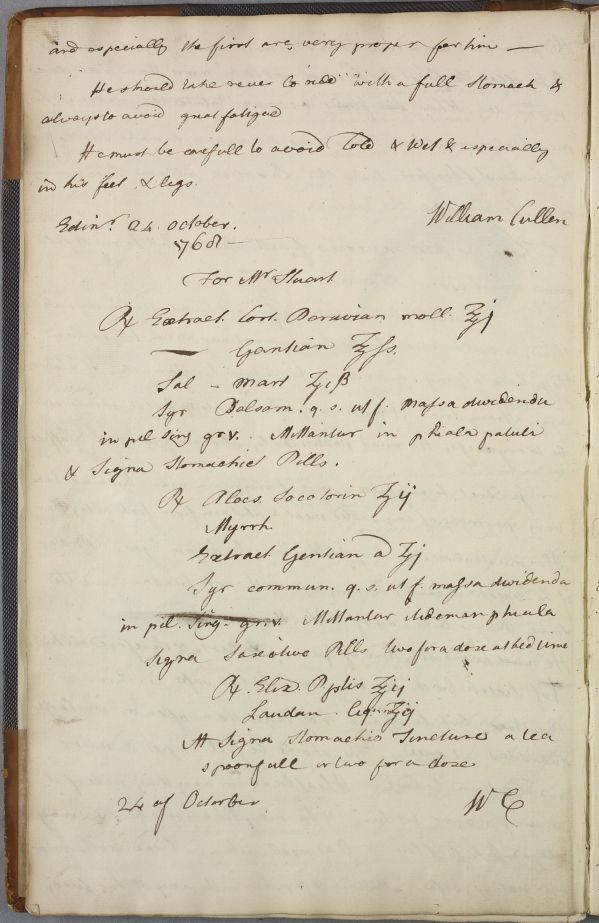 and especially the first are very proper for him —
He should take never to ride with a full stomach &
always to avoid great fatigue
He must be carefull to avoid Cold & Wet & especially
in his feet & legs.
Edinr. 24. October.
1768 —
William Cullen
For Mr Stuart
℞ Extract. Cort. Peruvian moll. ʒj
— Gentian ʒſs.
Sal - mart ʒ,β
Syr Balsam. q. s. ut f. massa dividenda
in pil sing gr v. Mittantur in phiala patuli
& Signa Stomachic Pills.
℞ Aloes. Socotorin ʒij
Myrrh.
Extract Gentian a ʒj
Syr commun. q. s. ut f. massa dividenda
in pil. Sing. gr. v. Mittantur phiala
Signa Laxative Pills two for a dose at bed time
℞. Elix. ʒij
Laudan. liquid ʒij
M Signa Stomachic Tincture a tea
spoonfull or two for a dose
24 of October
W C